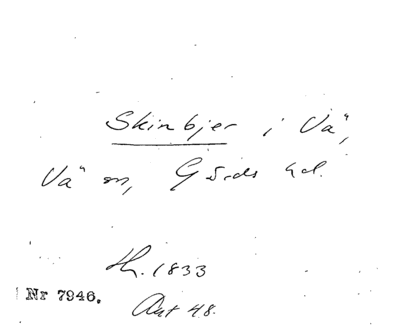 Skinbjer i Vä,
Vä sn, Gärds hd.
th. 1833
Nr 7946.
Akt 48.